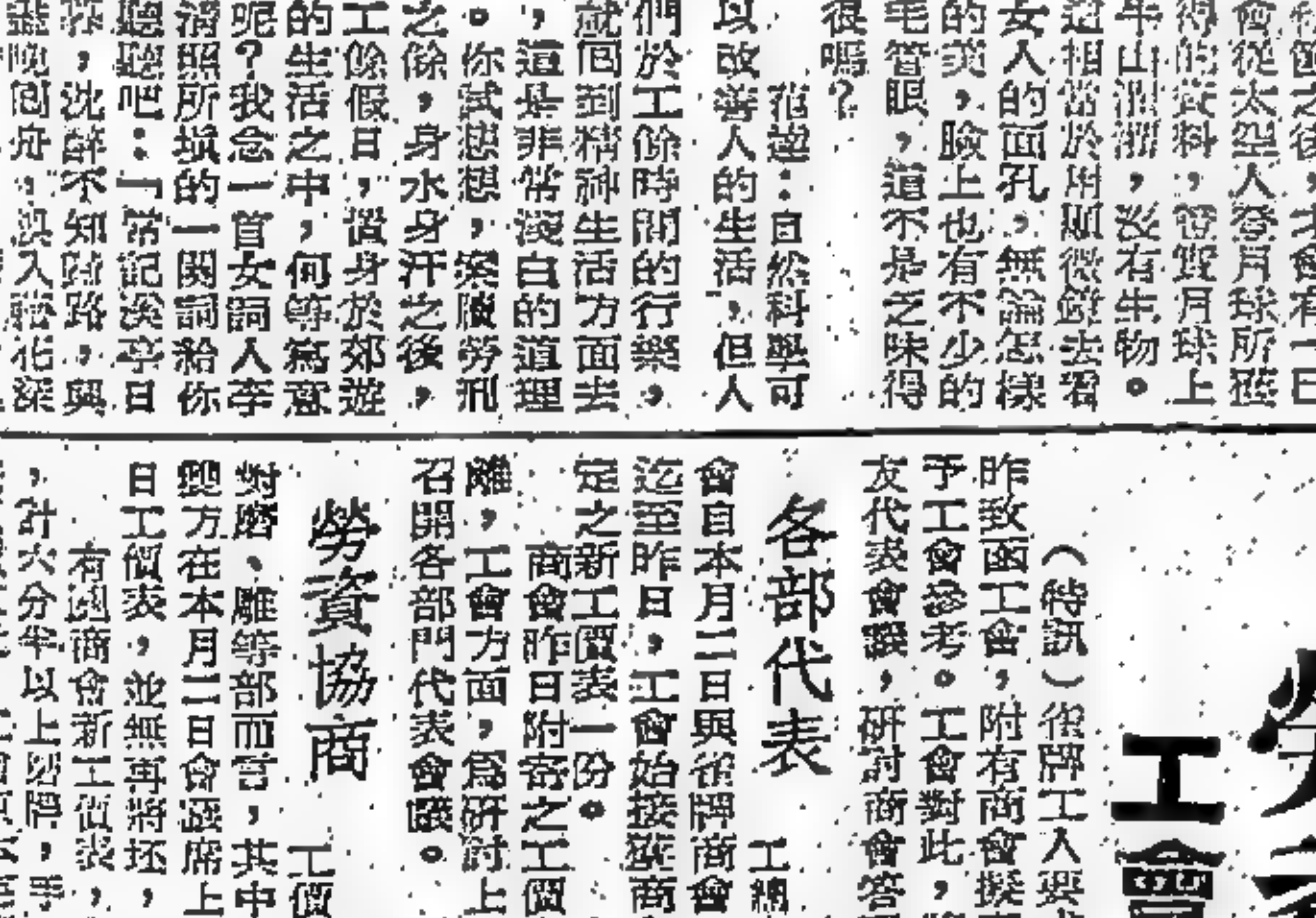 會從太空人登月球所獲
得的資料，證實月球上
牛山濯濯，沒有生物。
這相當於用顯微鏡去看
女人的面孔，無論怎樣
的美，臉上也有不少的
毛管眼，這不是乏味得
很嗎？
范遙：自然科學可
以改善人的生活，但人
們於工餘時間的行樂，
就回到精神生活方面去
，這是非常淺白的道理
。你試想想，案牘勞形
之餘，身水身汗之後，
工餘假日，置身於郊遊
的生活之中，何等寫意
呢？我念一首女詞人李
清照所填的一闋詞給你
聽聽吧：「常記溪亭日
，沈醉不知歸路，興
盡晚回舟，誤入藕花深
工會
（特訊）
昨致函工會，附有商會擬
予工會參考。工會對此，
友代表會議，研討商會答
各部代表
工
會自本月二日與
牌商會
迄至昨日，工會始接獲商
定之新工價表一份。
商會昨日附寄之工價
離，工會方面，爲研討上
召開各部門代表會議。
勞資協商
工價
對磨、雕等部而言，其中
雙方在本月二日會談席上
日工價表，並無再將坯，
有關商會新工價表，
，計六分半以上
，手